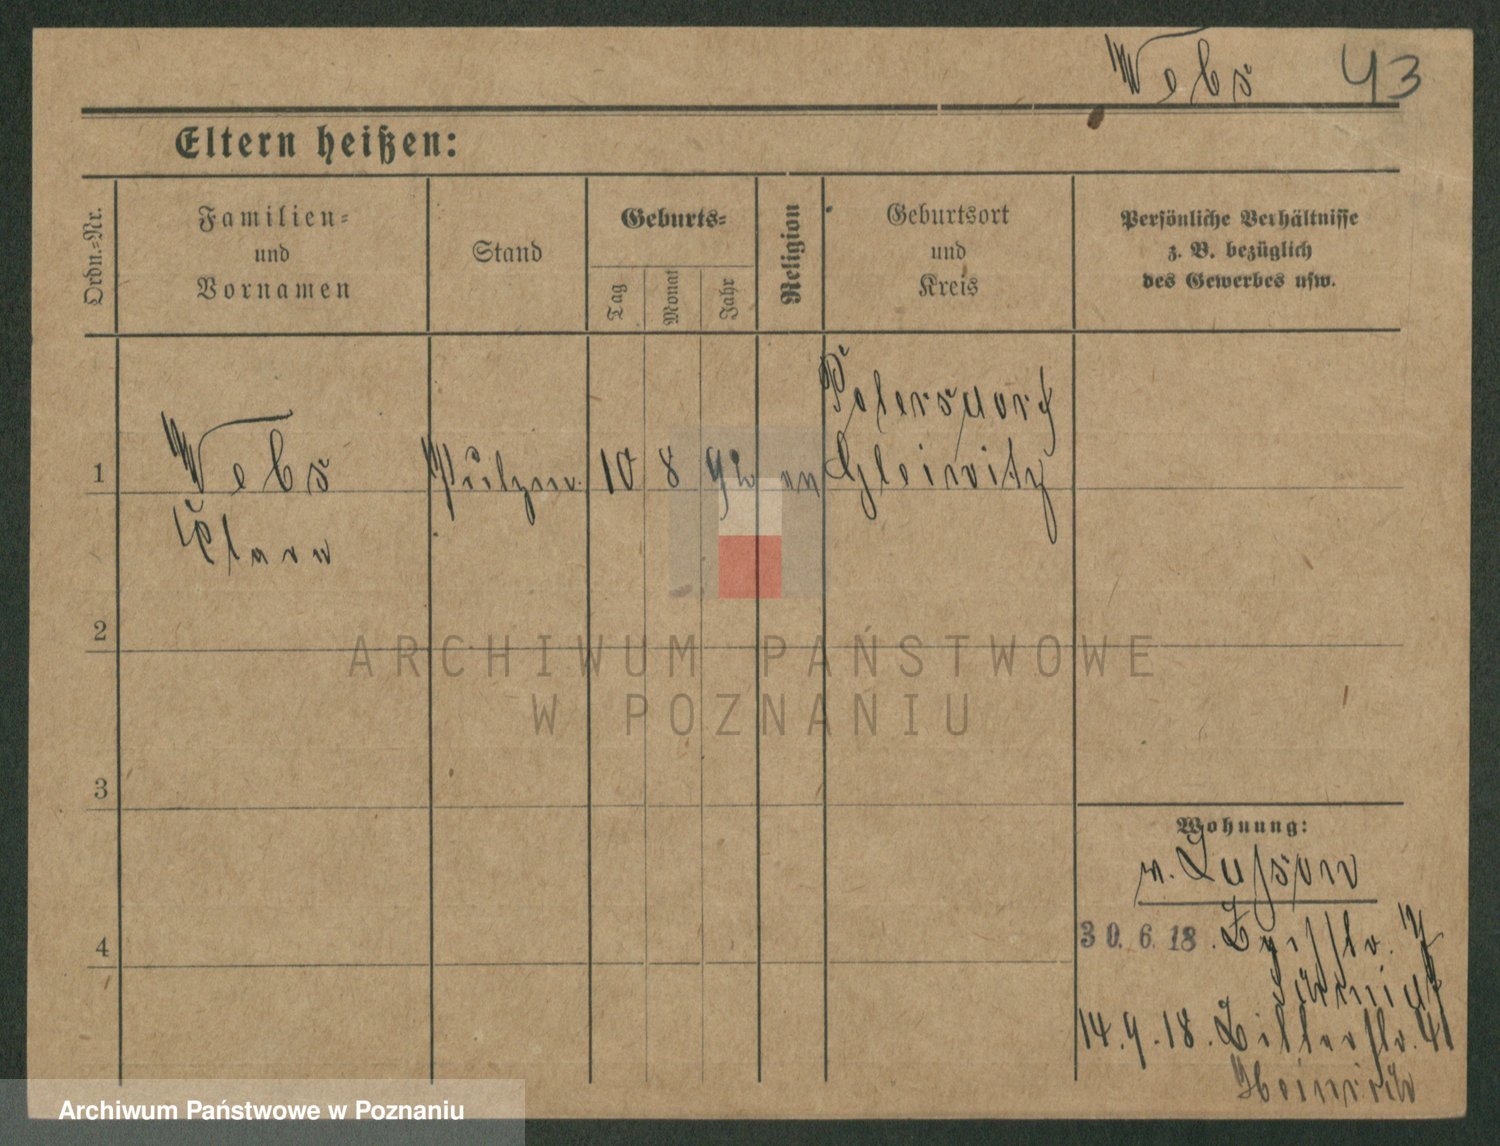 Webs 43
Eltern heißen:
Ordn.-Nr.
Familien-
und
Vornamen
Stand
Geburts-
Tag
Monat
Jahr
Religion
Geburtsort
und
Kreis
Persönliche Verhältnisse
z. B. bezüglich
des Gewerbes usw.
Petersdorf
1 Webs 10 8 92 Gleiwitz
Clara
2
3
4
Wohnung:
30. 6. 18.
14. 9. 18. Ritterstr. 41
Heinrich
ARCHIWUM PAŃSTWOWE
W POZNANIU
Archiwum Państwowe w Poznaniu